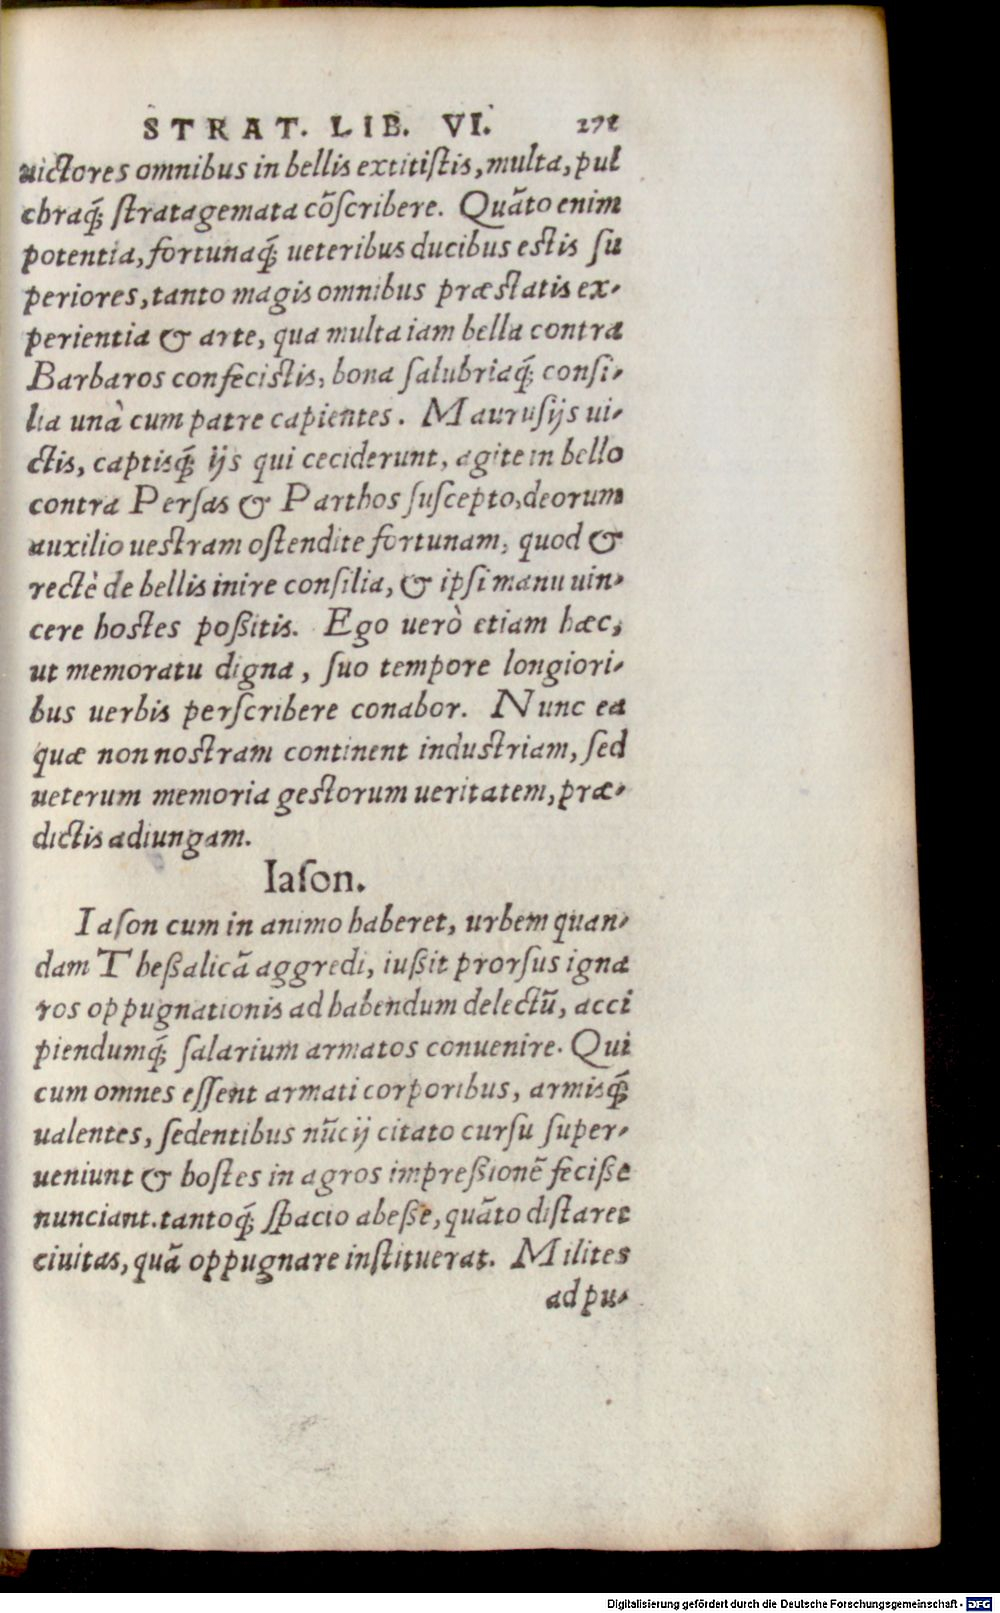 STRAT. LIB. VI. 271
uictores omnibus in bellis extitiſtis, multa, pul
chraq́; ſtratagemata cõſcribere. Quãto enim
potentia, fortunaq́; ueteribus ducibus estis ſu
periores, tanto magis omnibus præstatis ex-
perientia & arte, qua multa iam bella contra
Barbaros confecistis, bona ſalubriaq́; conſi-
lia unà cum patre capientes. Mauruſijs ui-
ctis, captisq́; ijs qui ceciderunt, agite in bello
contra Perſas & Parthos ſuſcepto, deorum
auxilio uestram oſtendite fortunam, quod &
rectè de bellis inire conſilia, & ipſi manu uin-
cere hostes poßitis. Ego uerò etiam hæc,
ut memoratu digna, ſuo tempore longiori-
bus uerbis perſcribere conabor. Nunc ea
quæ non nostram continent industriam, ſed
ueterum memoria gestorum ueritatem, præ-
dictis adiungam.
Iaſon.
Iaſon cum in animo haberet, urbem quan-
dam Theßalicã aggredi, iußit prorſus igna
ros oppugnationis ad habendum delectũ, acci
piendumq́; ſalarium armatos conuenire. Qui
cum omnes eſſent armati corporibus, armisq́;
ualentes, ſedentibus nũcij citato curſu ſuper-
ueniunt & hoſtes in agros impreßionẽ feciße
nunciant. tantoq́; ſpacio abeße, quãto diſtaret
ciuitas, quã oppugnare inſtituerat. Milites
ad pu-
Digitalisierung gefördert durch die Deutsche Forschungsgemeinschaft - DFG